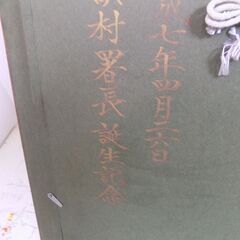 成七年四月二六日
村署長誕生記念